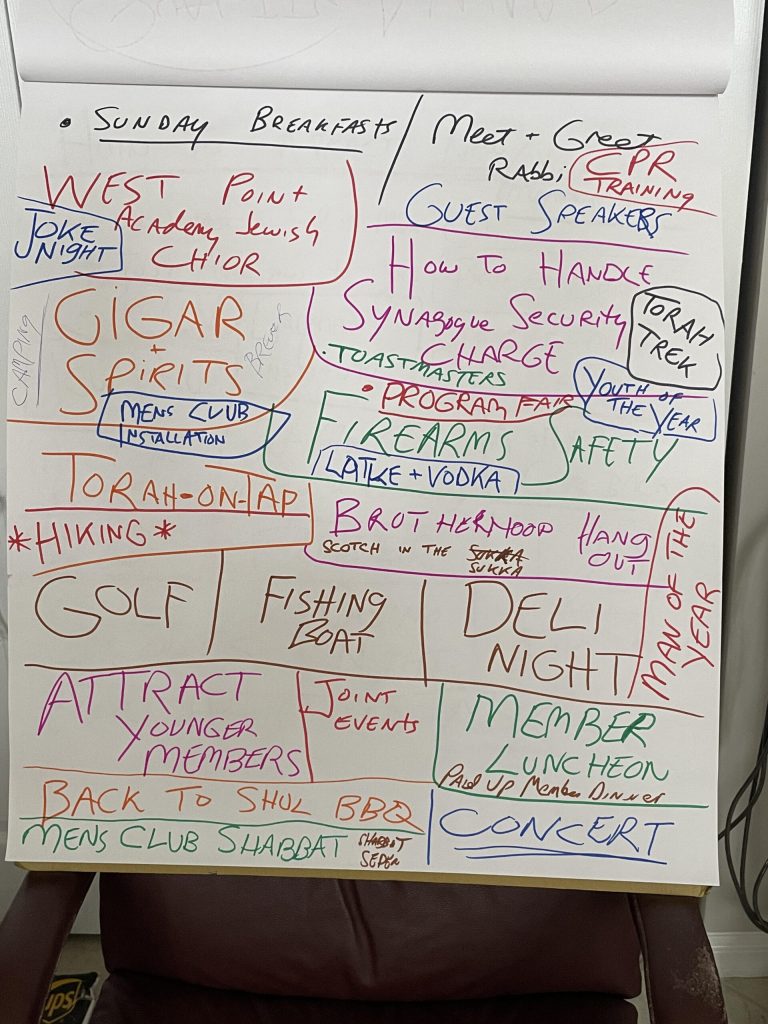 • SUNDAY BREAKFASTS
Meet + Greet
RABBi
CPR
TRAINING
GUEST SPEAKERS
WEST POINT
Academy Jewish
CHIOR
JOKE
NIGHT
HOW TO HANDLE
SYNAGOGUE SECURITY
CHARGE
• TOASTMASTERS
TORAH
TREK
CAMPING
CIGAR
+
SPIRITS
YOUTH OF
THE YEAR
• PROGRAM FAIR
MENS CLUB
INSTALLATION
FIREARMS SAFETY
LATKE + VODKA
TORAH-ON-TAP
*HIKING*
BROTHERHOOD HANG
OUT
SCOTCH IN THE
SUKKA
MAN OF THE
YEAR
GOLF
FISHING
BOAT
DELI
NIGHT
ATTRACT
YOUNGER
MEMBERS
JOINT
EVENTS
MEMBER
LUNCHEON
PAID UP Member DINNER
BACK TO SHUL BBQ
MENS CLUB SHABBAT
SEDER
CONCERT
ups